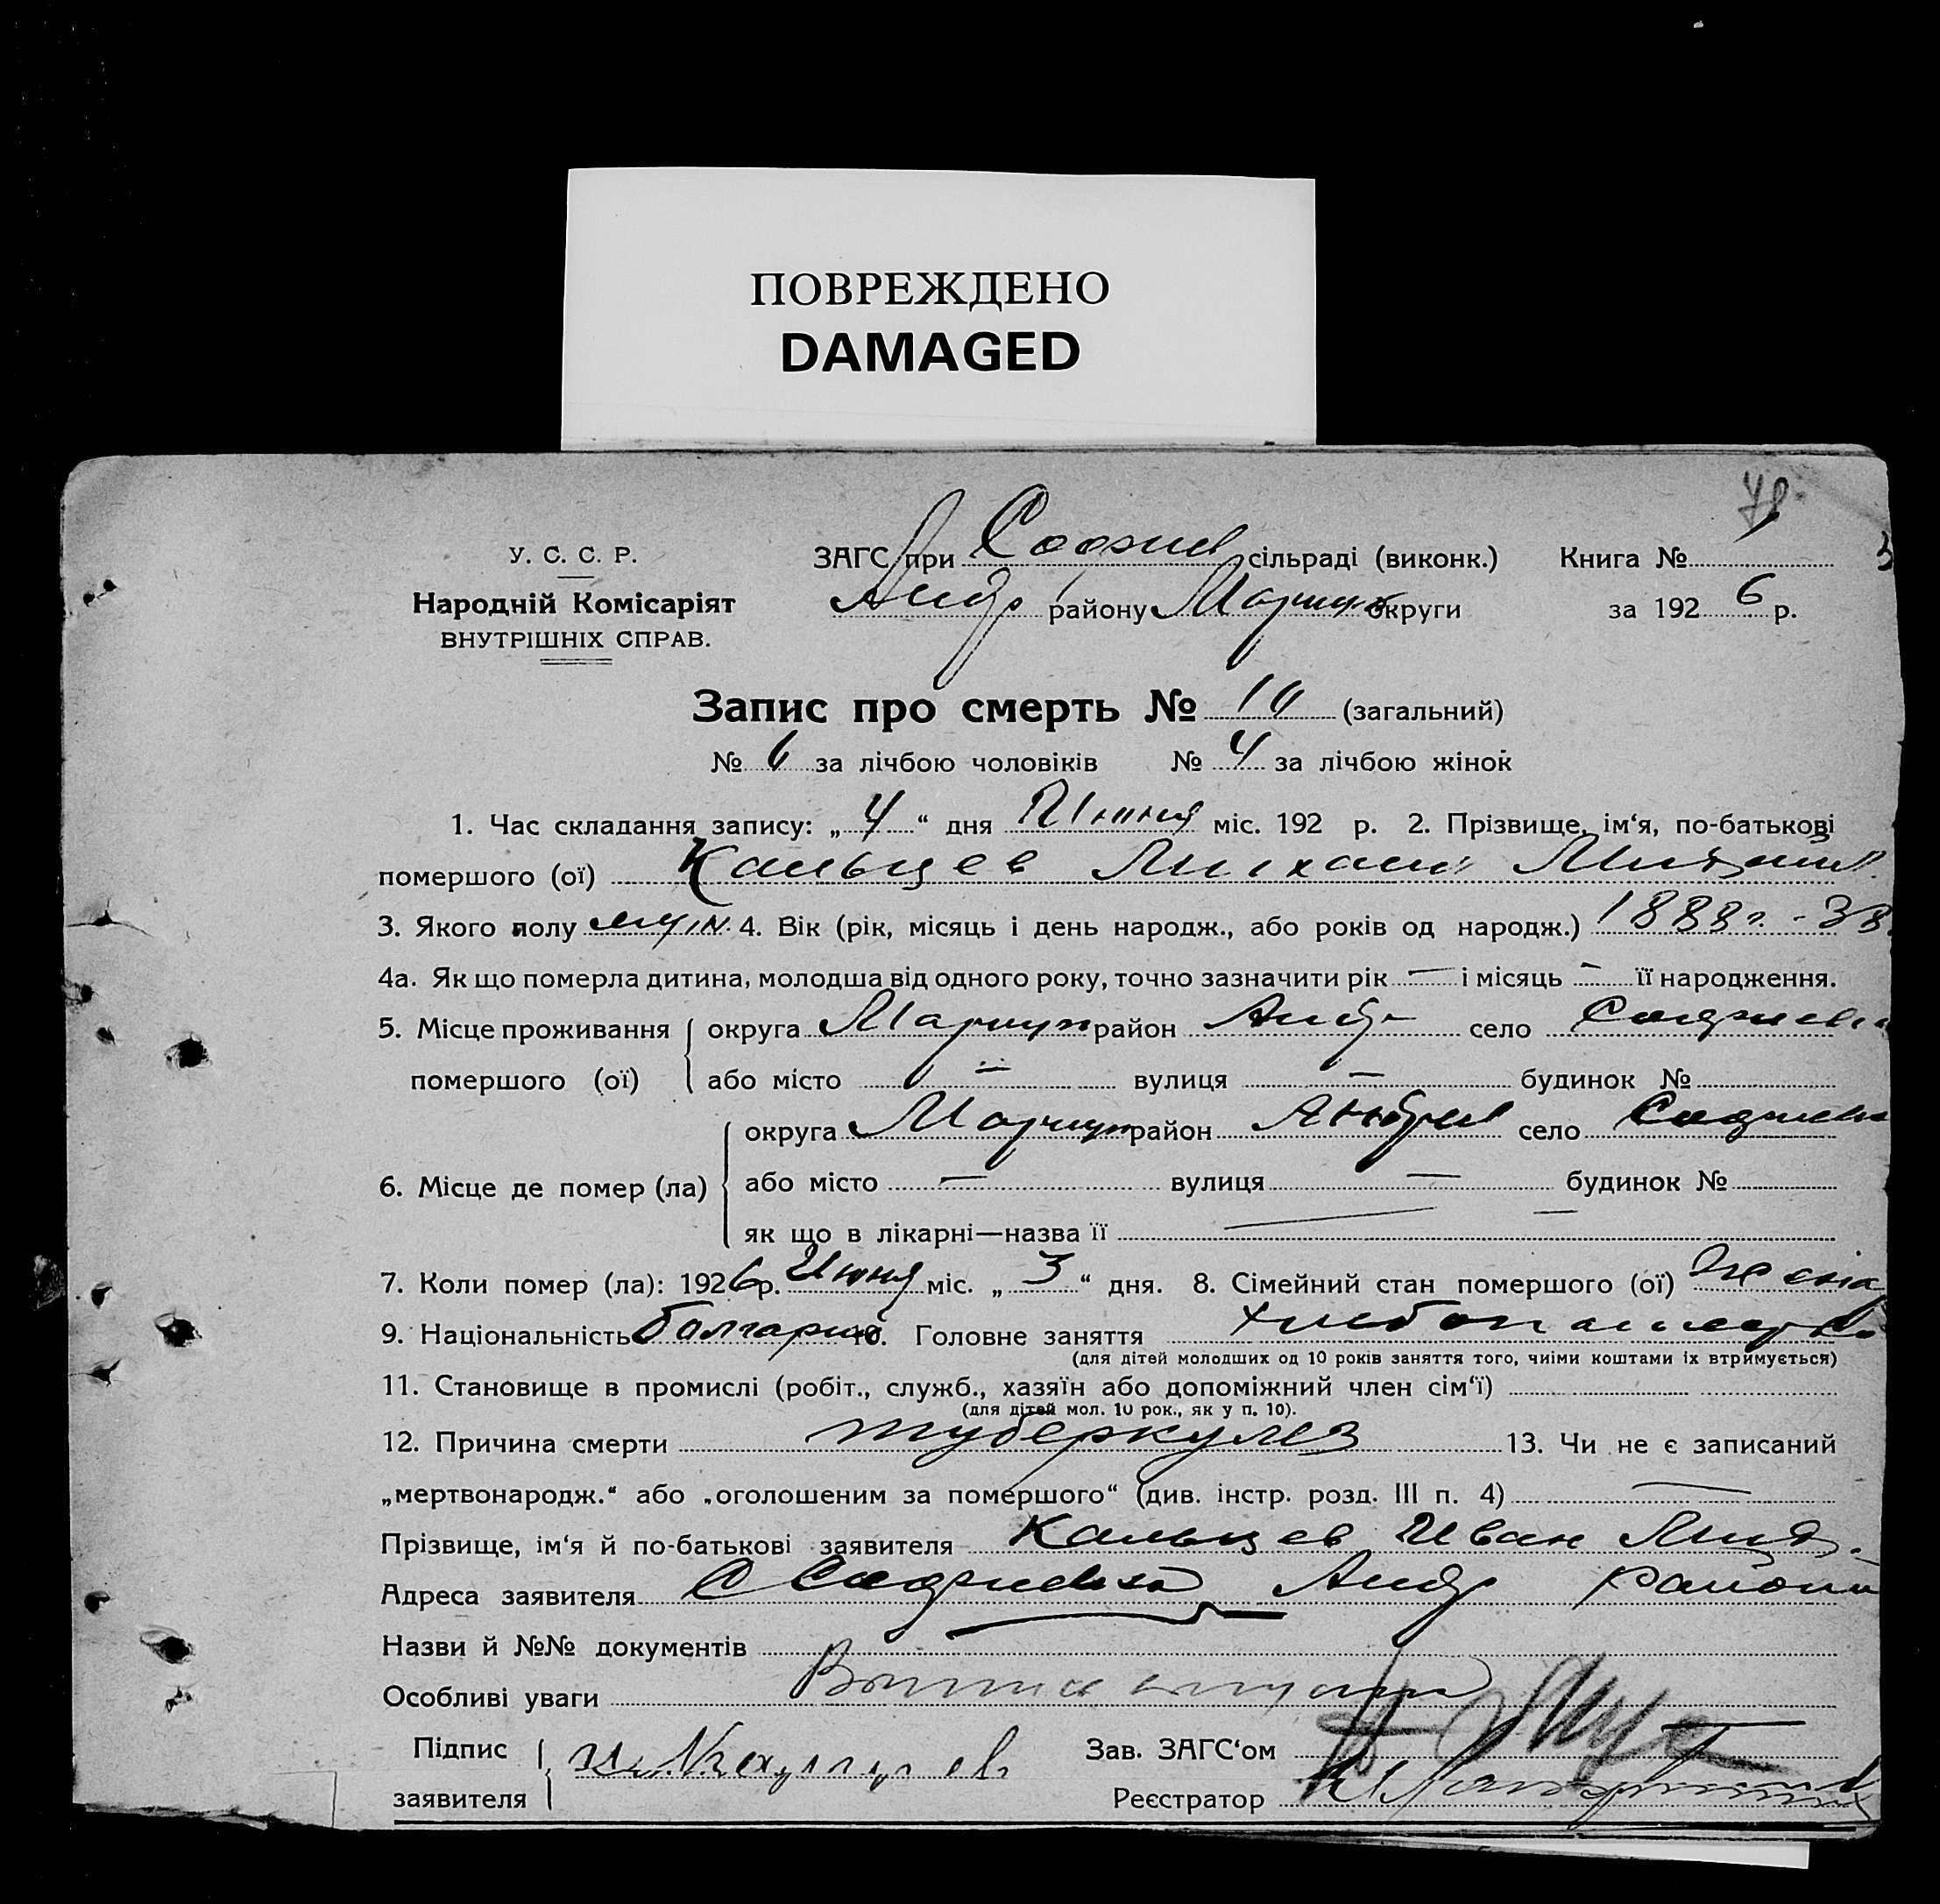 ПОВРЕЖДЕНО
DAMAGED
У. С. С. Р.
Народній Комісаріят
ВНУТРІШНІХ СПРАВ.
ЗАГС при Софиев сільраді (виконк.)
Андр району Мариуп округи
Книга № 1
за 1926 р.
Запис про смерть № 10 (загальний)
№ 6 за лічбою чоловіків № 4 за лічбою жінок
1. Час складання запису: „4“ дня Июня міс. 192 р. 2. Прізвище, ім‘я, по-батькові
помершого (ої) Кальцев Михаил
3. Якого полу муж. 4. Вік (рік, місяць і день народж., або років од народж.) 1888 г. - 38
4а. Як що померла дитина, молодша від одного року, точно зазначити рік — і місяць — її народження.
5. Місце проживання помершого (ої) округа Мариуп район Андр село Софиевка
або місто — вулиця — будинок №
6. Місце де помер (ла) округа Мариуп район Андрев село Софиевка
або місто — вулиця — будинок № —
як що в лікарні—назва її —
7. Коли помер (ла): 1926 р. Июня міс. „3“ дня. 8. Сімейний стан помершого (ої)
9. Національність болгарин 10. Головне заняття
(для дітей молодших од 10 років заняття того, чиїми коштами їх втримується)
11. Становище в промислі (робіт., служб., хазяїн або допоміжний член сім‘ї)
(для дітей мол. 10 рок., як у п. 10).
12. Причина смерти туберкулез 13. Чи не є записаний
„мертвонародж.“ або „оголошеним за помершого“ (див. інстр. розд. III п. 4) —
Прізвище, ім‘я й по-батькові заявителя Кальцев Иван
Адреса заявителя С Софиевка Андр района
Назви й №№ документів
Особливі уваги
Підпис заявителя
Зав. ЗАГС‘ом
Реєстратор